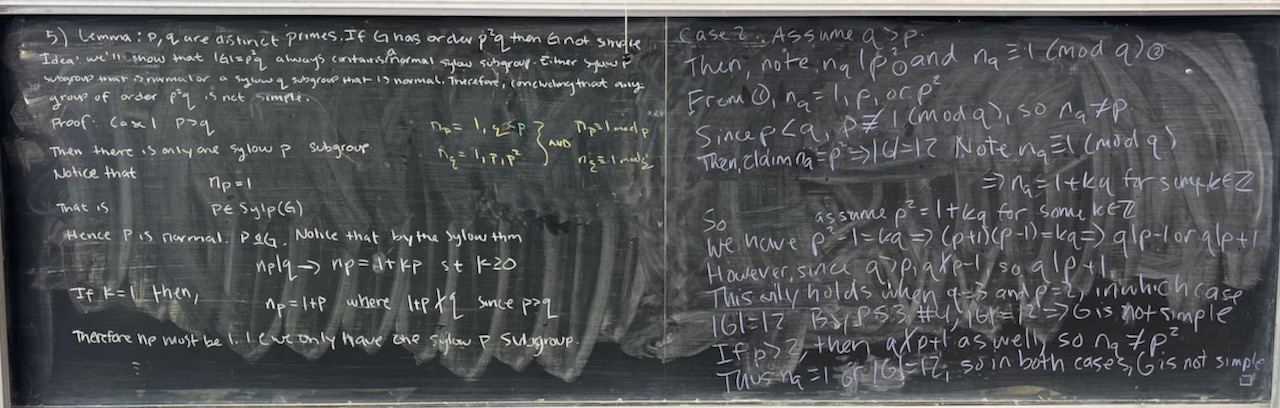 5) Lemma: p, q are distinct primes. If G has order p²q then G not simple
Idea: we'll show that |G|=p²q always contains a normal sylow subgroup. Either sylow p
subgroup that is normal or a sylow q subgroup that is normal. Therefore, concluding that any
group of order p²q is not simple.
Proof: Case 1 p>q
Then there is only one sylow p subgroup
Notice that
n_p = 1
That is P ∈ Syl_p(G)
Hence P is normal. P ⊴ G. Notice that by the Sylow thm
n_p|q → n_p = 1+kp s.t k≥0
If k=1 then,
n_p = 1+p where 1+p ∤ q since p>q
Therefore n_p must be 1. I.e we only have one sylow p subgroup.
n_p = 1, q
n_q = 1, p, p²
AND
n_p ≡ 1 mod p
n_q ≡ 1 mod q
Case 2. Assume q>p.
Then, note, n_q | p² ① and n_q ≡ 1 (mod q) ②
From ①, n_q = 1, p, or p²
Since p<q, p ≢ 1 (mod q), so n_q ≠ p.
Then, claim n_q = p² ⇒ |G|=12 Note n_q ≡ 1 (mod q)
⇒ n_q = 1+kq for some k∈ℤ
So assume p² = 1+kq for some k∈ℤ
We have p²-1 = kq ⇒ (p+1)(p-1) = kq ⇒ q|p-1 or q|p+1.
However, since q>p, q∤p-1, so q|p+1.
This only holds when q=3 and p=2, in which case
|G|=12 By PS3 #4, |G|=12 ⇒ G is not simple
If p>2, then q∤p+1 as well, so n_q ≠ p²
Thus n_q = 1 or |G|=12, so in both cases, G is not simple
□